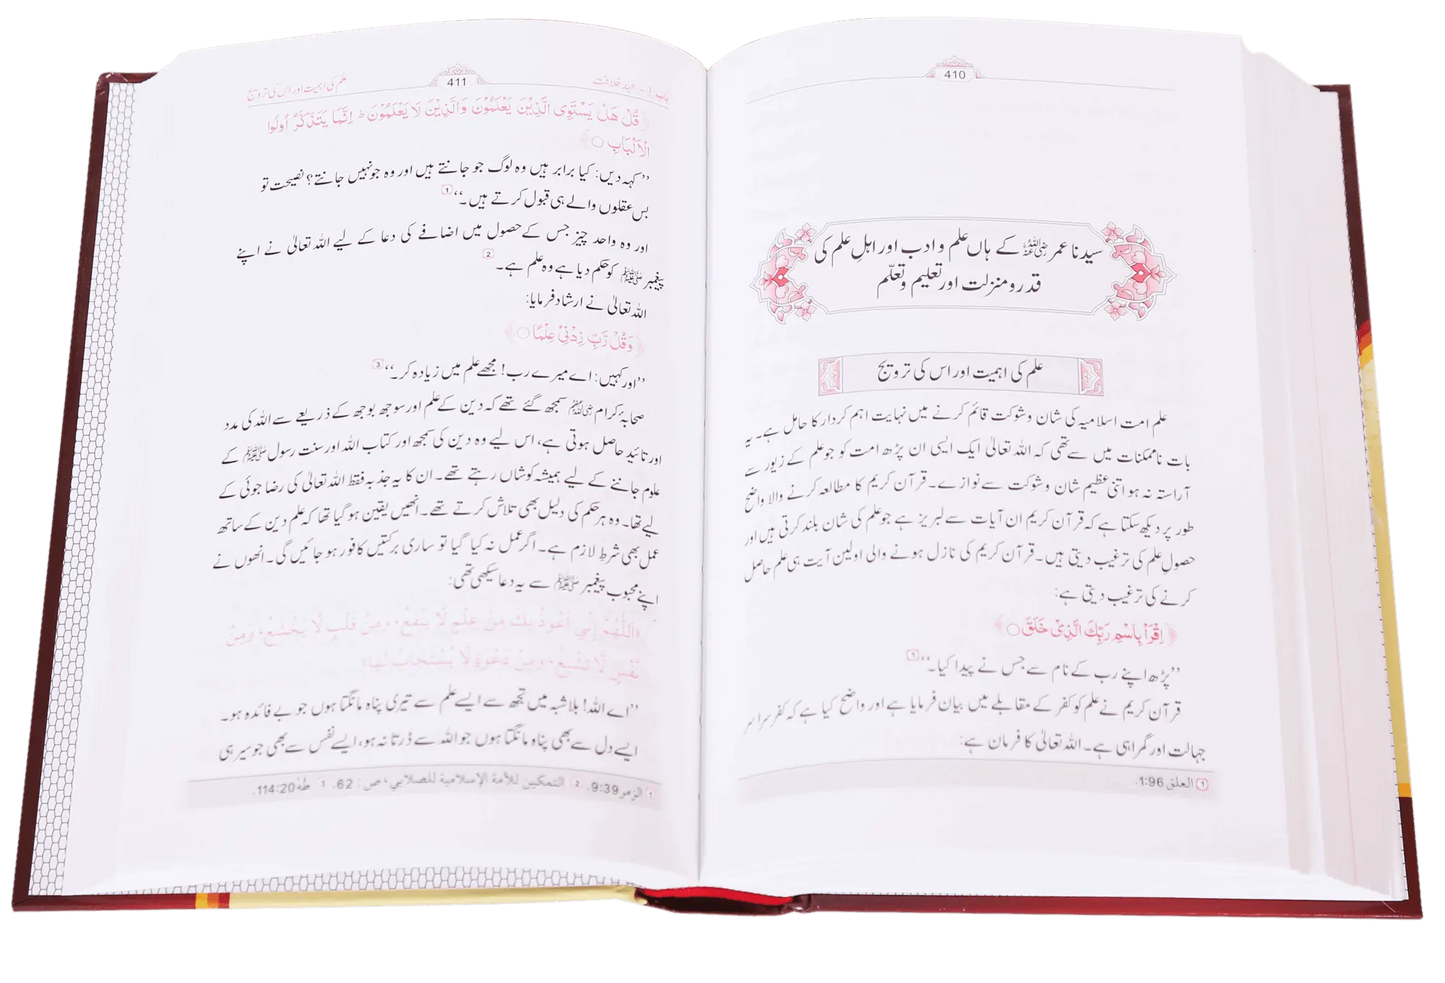 410
سیدنا عمر رضی اللہ عنہ کے ہاں علم و ادب اور اہلِ علم کی
قدر و منزلت اور تعلیم و تعلّم
علم کی اہمیت اور اس کی ترویج
علم امت اسلامیہ کی شان و شوکت قائم کرنے میں نہایت اہم کردار کا حامل ہے۔ یہ
بات ناممکنات میں سے تھی کہ اللہ تعالیٰ ایک ایسی ان پڑھ امت کو جو علم کے زیور سے
آراستہ نہ ہو اتنی عظیم شان و شوکت سے نوازے۔ قرآن کریم کا مطالعہ کرنے والا واضح
طور پر دیکھ سکتا ہے کہ قرآن کریم ان آیات سے لبریز ہے جو علم کی شان بلند کرتی ہیں اور
حصولِ علم کی ترغیب دیتی ہیں۔ قرآن کریم کی نازل ہونے والی اولین آیت ہی علم حاصل
کرنے کی ترغیب دیتی ہے:
﴿اِقْرَاْ بِاسْمِ رَبِّكَ الَّذِیْ خَلَقَ ○﴾
’’پڑھ اپنے رب کے نام سے جس نے پیدا کیا۔‘‘ ①
قرآن کریم نے علم کو کفر کے مقابلے میں بیان فرمایا ہے اور واضح کیا ہے کہ کفر سراسر
جہالت اور گمراہی ہے۔ اللہ تعالیٰ کا فرمان ہے:
① العلق 1:96.
باب: 3 - عہد خلافت 411 علم کی اہمیت اور اس کی ترویج
﴿قُلْ هَلْ یَسْتَوِی الَّذِیْنَ یَعْلَمُوْنَ وَالَّذِیْنَ لَا یَعْلَمُوْنَ ؕ اِنَّمَا یَتَذَكَّرُ اُولُوا
الْاَلْبَابِ ○﴾
’’کہہ دیں: کیا برابر ہیں وہ لوگ جو جانتے ہیں اور وہ جو نہیں جانتے؟ نصیحت تو
بس عقلوں والے ہی قبول کرتے ہیں۔‘‘ ①
اور وہ واحد چیز جس کے حصول میں اضافے کی دعا کے لیے اللہ تعالیٰ نے اپنے
پیغمبر ﷺ کو حکم دیا ہے وہ علم ہے۔ ②
اللہ تعالیٰ نے ارشاد فرمایا:
﴿وَقُلْ رَّبِّ زِدْنِیْ عِلْمًا ○﴾
’’اور کہیں: اے میرے رب! مجھے علم میں زیادہ کر۔‘‘ ③
صحابۂ کرام رضی اللہ عنہم سمجھ گئے تھے کہ دین کے علم اور سوجھ بوجھ کے ذریعے سے اللہ کی مدد
اور تائید حاصل ہوتی ہے، اس لیے وہ دین کی سمجھ اور کتاب اللہ اور سنت رسول ﷺ کے
علوم جاننے کے لیے ہمیشہ کوشاں رہتے تھے۔ ان کا یہ جذبہ فقط اللہ تعالیٰ کی رضا جوئی کے
لیے تھا۔ وہ ہر حکم کی دلیل بھی تلاش کرتے تھے۔ انھیں یقین ہو گیا تھا کہ علم دین کے ساتھ
عمل بھی شرط لازم ہے۔ اگر عمل نہ کیا گیا تو ساری برکتیں کافور ہو جائیں گی۔ انھوں نے
اپنے محبوب پیغمبر ﷺ سے یہ دعا سیکھی تھی:
«اَللّٰهُمَّ إِنِّي أَعُوذُ بِكَ مِنْ عِلْمٍ لَّا يَنْفَعُ، وَمِنْ قَلْبٍ لَّا يَخْشَعُ، وَمِنْ
نَّفْسٍ لَّا تَشْبَعُ، وَمِنْ دَعْوَةٍ لَّا يُسْتَجَابُ لَهَا»
’’اے اللہ! بلاشبہ میں تجھ سے ایسے علم سے تیری پناہ مانگتا ہوں جو بے فائدہ ہو۔
ایسے دل سے بھی پناہ مانگتا ہوں جو اللہ سے ڈرتا نہ ہو، ایسے نفس سے بھی جو سیر ہی
① الزمر 9:39. ② التمكين للأمة الإسلامية للصلابي، ص: 62. ③ طٰہٰ 114:20.